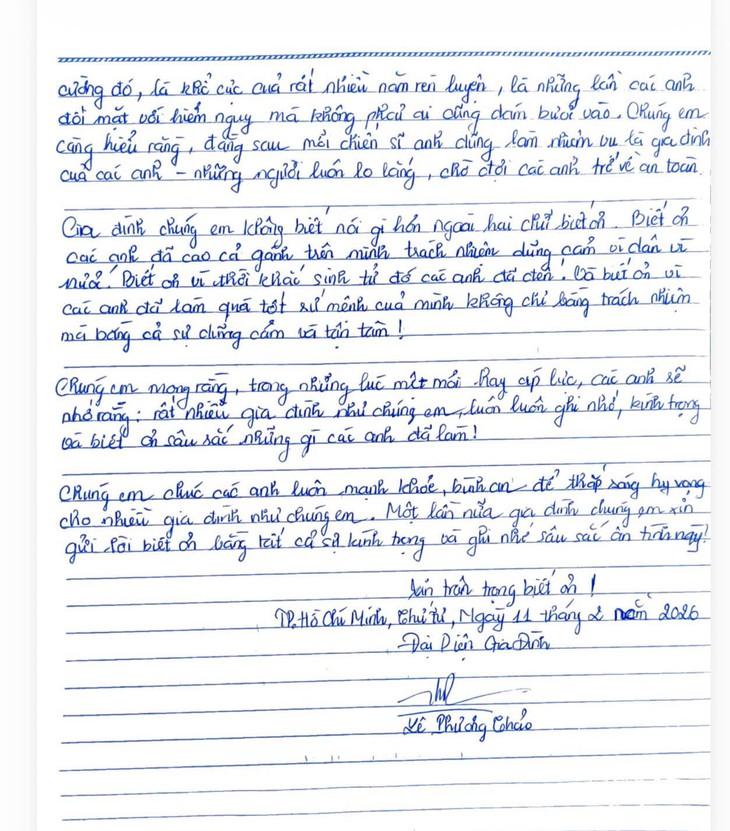 cường đó, là khổ cực của rất nhiều năm rèn luyện, là những lần các anh
đối mặt với hiểm nguy mà không phải ai cũng dám bước vào. Chúng em
càng hiểu rằng, đằng sau mỗi chiến sĩ anh dũng làm nhiệm vụ là gia đình
của các anh – những người luôn lo lắng, chờ đợi các anh trở về an toàn.
Gia đình chúng em không biết nói gì hơn ngoài hai chữ biết ơn. Biết ơn
các anh đã cao cả gánh trên mình trách nhiệm dũng cảm vì dân vì
nước! Biết ơn vì thời khắc sinh tử đó các anh đã đến! Và biết ơn vì
các anh đã làm quá tốt sứ mệnh của mình không chỉ bằng trách nhiệm
mà bằng cả sự dũng cảm và tận tâm!
Chúng em mong rằng, trong những lúc mệt mỏi hay áp lực, các anh sẽ
nhớ rằng: rất nhiều gia đình như chúng em, luôn luôn ghi nhớ, kính trọng
và biết ơn sâu sắc những gì các anh đã làm!
Chúng em chúc các anh luôn mạnh khỏe, bình an để thắp sáng hy vọng
cho nhiều gia đình như chúng em. Một lần nữa gia đình chúng em xin
gửi lời biết ơn bằng tất cả sự kính trọng và ghi nhớ sâu sắc ân tình này!
Xin trân trọng biết ơn!
TP. Hồ Chí Minh, Thứ tư, Ngày 11 tháng 2 năm 2026
Đại Diện Gia Đình
Lê Phương Thảo